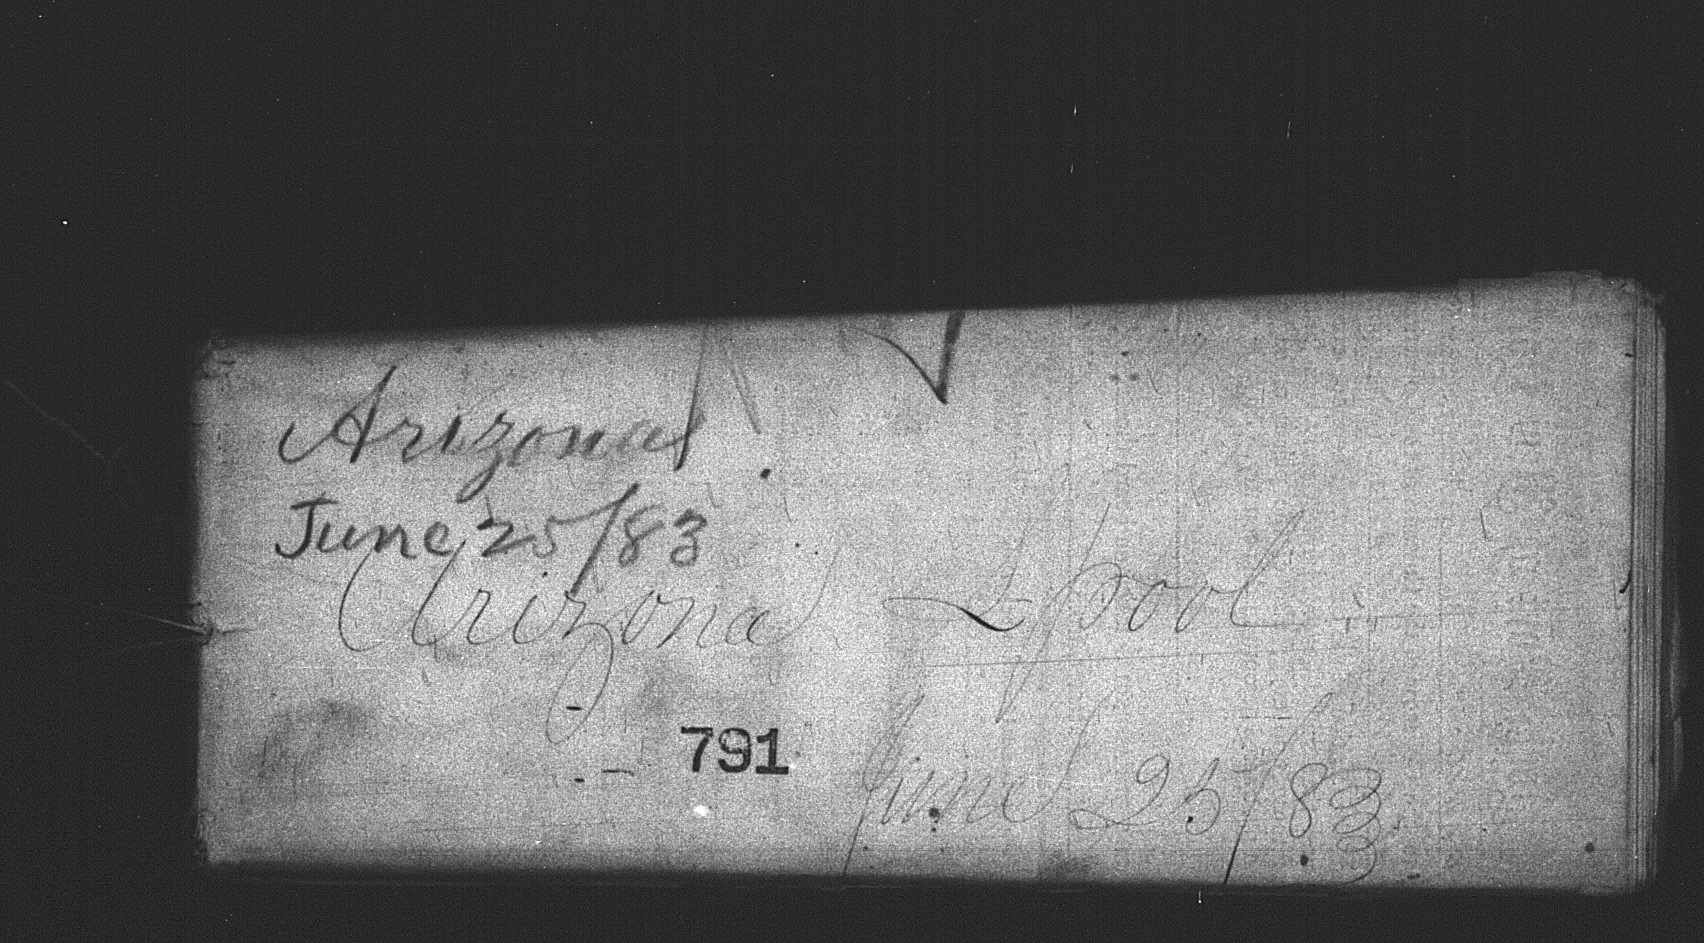 Arizona
June 25/83
Arizona Lpool
791
June 25/83